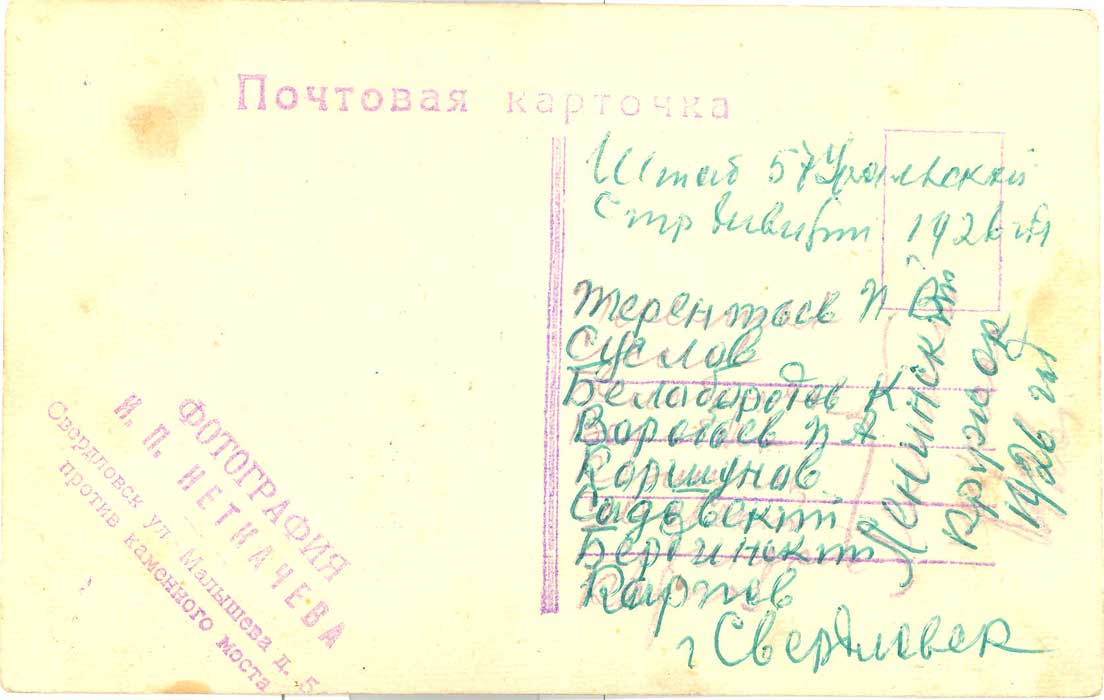 Почтовая карточка
Штаб 57 Уральской
Стр дивизии 1926 гд
Терентьев П.
Суслов
Белабородов К
Воробьев П А
Коршунов
Садовский
Карпов
г Свердловск
Ленинский
кружок
1926 гд
ФОТОГРАФИЯ
И. П. НЕТИАЧЕВА
Свердловск ул Малышева д. 5
против каменного моста